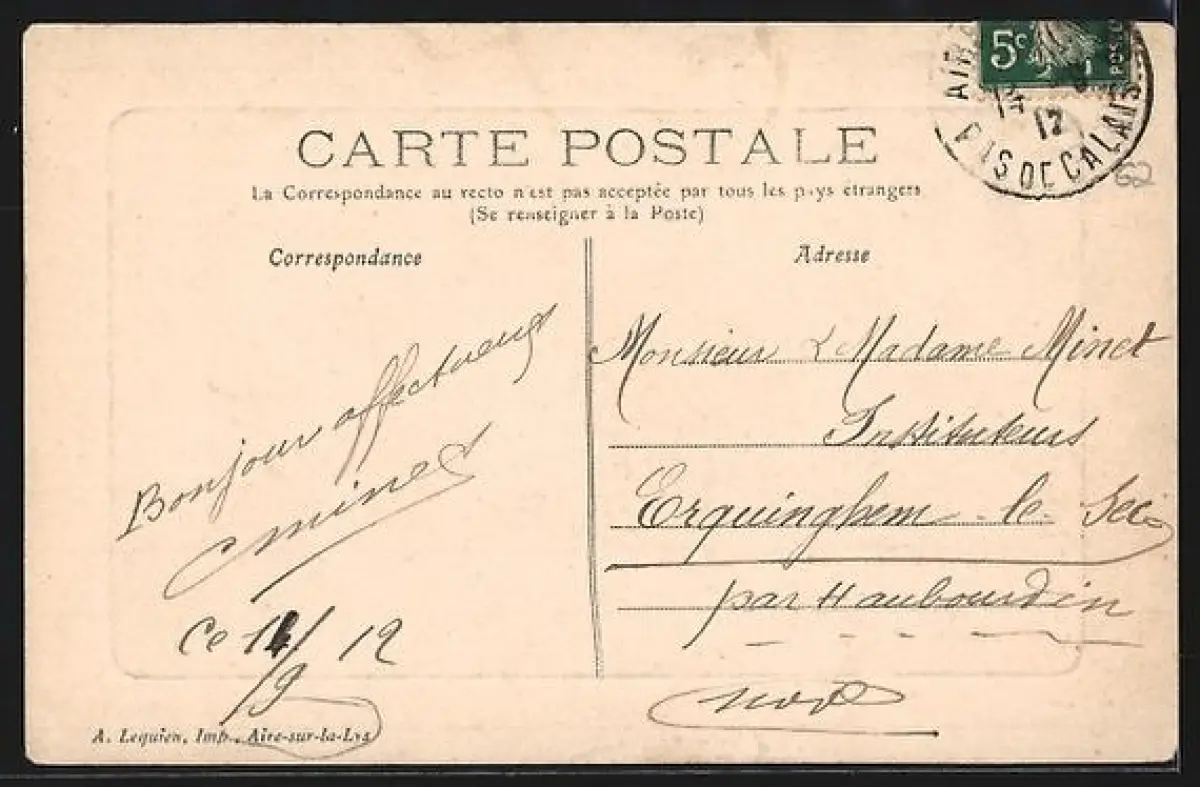 5c
POSTES
AIRE
14
12
PAS DE CALAIS
62
CARTE POSTALE
La Correspondance au recto n'est pas acceptée par tous les pays étrangers
(Se renseigner à la Poste)
Correspondance
Bonjour affectueux
Ce 14/9 12
A. Lequien, Imp., Aire-sur-la-Lys
Adresse
Monsieur & Madame Minet
Instituteurs
Erquinghem-le-Sec
par Haubourdin
Nord